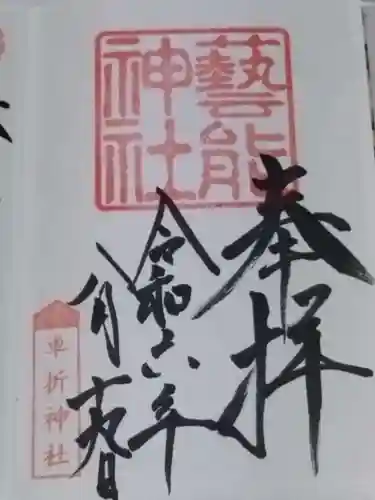 藝能神社
奉拝
令和六年
八月十九日
車折神社